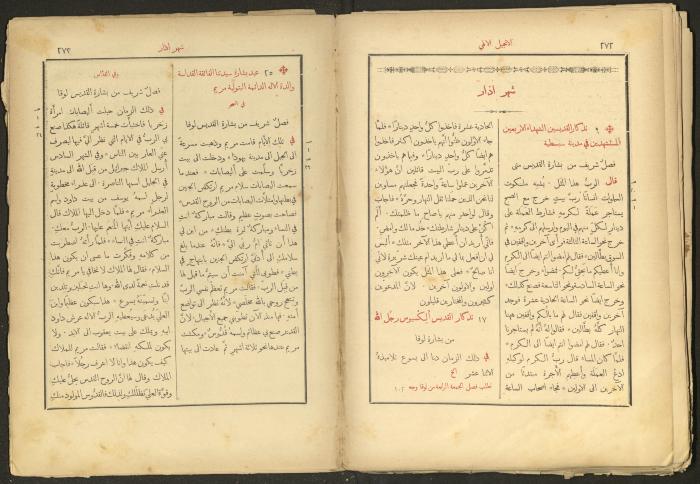 ٢٧٢
الانجيل الالهي
شهر اذار
٩ تذكار القديسين الشهداء الاربعين
المستشهدين في مدينة سبسطية
فصل شريف من بشارة القديس متى
قال الرب هذا المثل . يشبه ملكوت
السماوات انسانًا ربَّ بيت خرج مع الصبح
يستأجر عملةً لكرمهِ فشارط العملة على
دينار لكل منهم في اليوم وارسلهم الى كرمهِ
خرج نحو الساعة الثالثة فرأى آخرين واقفين في
السوق بطَّالين فقال لهم امضوا انتم ايضًا الى الكرم
وانا أعطيكم ما يحق لكم فمضوا وخرج ايضًا
نحو الساعة السادسة ونحو التاسعة فصنع كذلك
وخرج ايضًا نحو الساعة الحادية عشرة فوجد
آخرين واقفين فقال لهم ما بالكم واقفين ههنا
النهار كلَّهُ بطَّالين فقالوا لهُ انهُ لم يستأجرنا
احد . فقال لهم امضوا انتم ايضًا الى الكرم
فلما كان المساء قال رب الكرم لوكيلهِ
ادعُ العملة وأعطهم الأجرة مبتدئًا من
الآخرين الى الاولين فجاء اصحاب الساعة
الحادية عشرة فاخذوا كل واحدٍ دينارًا فلما
جاء الاولون ظنوا انهم يأخذون اكثر فاخذوا
هم ايضًا كل واحدٍ دينارًا وفيما هم يأخذون
تذمَّروا على رب البيت قائلين انَّ هؤلاء
الآخرين عملوا ساعةً واحدةً فجعلتهم مساوين
لنا نحن الذين حملنا ثقل النهار وحرَّهُ فاجاب
وقال لواحدٍ منهم يا صاحِ ما ظلمتك . ألم
تكن على دينار شارطتك خذ ما لك وامضِ
فاني أريد ان أعطي هذا الآخر مثلك أليس
لي ان افعل بما لي ما اريد ام عينك شريرة لاني
انا صالح فعلى هذا المثل يكون الآخرون
اولين والاولون آخرين . لانَّ المدعوين
كثيرون والمختارين قليلون
١٧ تذكار القديس ألكسيوس رجل الله
من بشارة لوقا
في ذلك الزمان دنا الى يسوع تلاميذهُ
الاثنا عشر الخ
تطلب فصل الجمعة الرابعة من لوقا وجه ١٠٢
شهر اذار
٢٧٣
٢٥ عيد بشارة سيدتنا الفائقة القداسة
والدة الاله الدائمة البتولية مريم
في السحر
فصل شريف من بشارة القديس لوقا
في تلك الايام قامت مريم وذهبت مسرعةً
الى الجبل الى مدينة يهوذا ودخلت الى بيت
زخريا وسلَّمت على أليصابات فعندما
سمعت اليصابات سلام مريم ارتكض الجنين
في بطنها وامتلأت اليصابات من الروح القدس
فصاحت بصوتٍ عظيمٍ وقالت مباركةٌ انتِ
في النساء ومباركةٌ ثمرة بطنكِ من اين لي
هذا ان تأتي امُّ ربي اليَّ فانهُ عندما بلغ
سلامكِ الى أذني ارتكض الجنين بابتهاجٍ في
بطني فطوبى للتي آمنت ان سيتمُّ ما قيل لها
من قبل الرب فقالت مريم تعظم نفسي الرب
وتبتهج روحي بالله مخلصي لانهُ نظر الى تواضع
أمتهِ فها منذ الآن تطوِّبني جميع الاجيال لانَّ
القدير صنع بي عظائم واسمهُ قدُّوس ومكثت
مريم عندها نحو ثلاثة اشهرٍ ثمَّ عادت الى بيتها
وفي القداس
فصل شريف من بشارة القديس لوقا
في ذلك الزمان حبلت أليصابات امرأة
زخريا فاختبأت خمسة اشهرٍ قائلةً هكذا صنع
بي الرب في الايام التي نظر اليَّ فيها ليصرف
عني العار بين الناس وفي الشهر السادس
أُرسل الملاك جبرائيل من قبل الله الى مدينةٍ
في الجليل اسمها الناصرة الى عذراء مخطوبةٍ
لرجلٍ اسمهُ يوسف من بيت داود واسم
العذراء مريم فلما دخل اليها الملاك قال
السلام عليكِ أيتها المنعم عليها . الرب معكِ .
مباركةٌ انتِ في النساء فلما رأتهُ اضطربت
من كلامهِ وفكَّرت ما عسى ان يكون هذا
السلام فقال لها الملاك لا تخافي يا مريم فانكِ
قد نلتِ نعمةً لدى الله وها انتِ تحبلين وتلدين
ابنًا وتسمينهُ يسوع هذا سيكون عظيمًا وابن
العلي يُدعى وسيعطيهِ الرب الاله عرش داود
ابيهِ ويملك على بيت يعقوب الى الابد . ولا
يكون لملكهِ انقضاء فقالت مريم للملاك
كيف يكون هذا وانا لا اعرف رجلًا فاجاب
الملاك وقال لها انَّ الروح القدس يحلُّ عليكِ
وقوة العلي تظللكِ ولذلك فالقدُّوس المولود منكِ